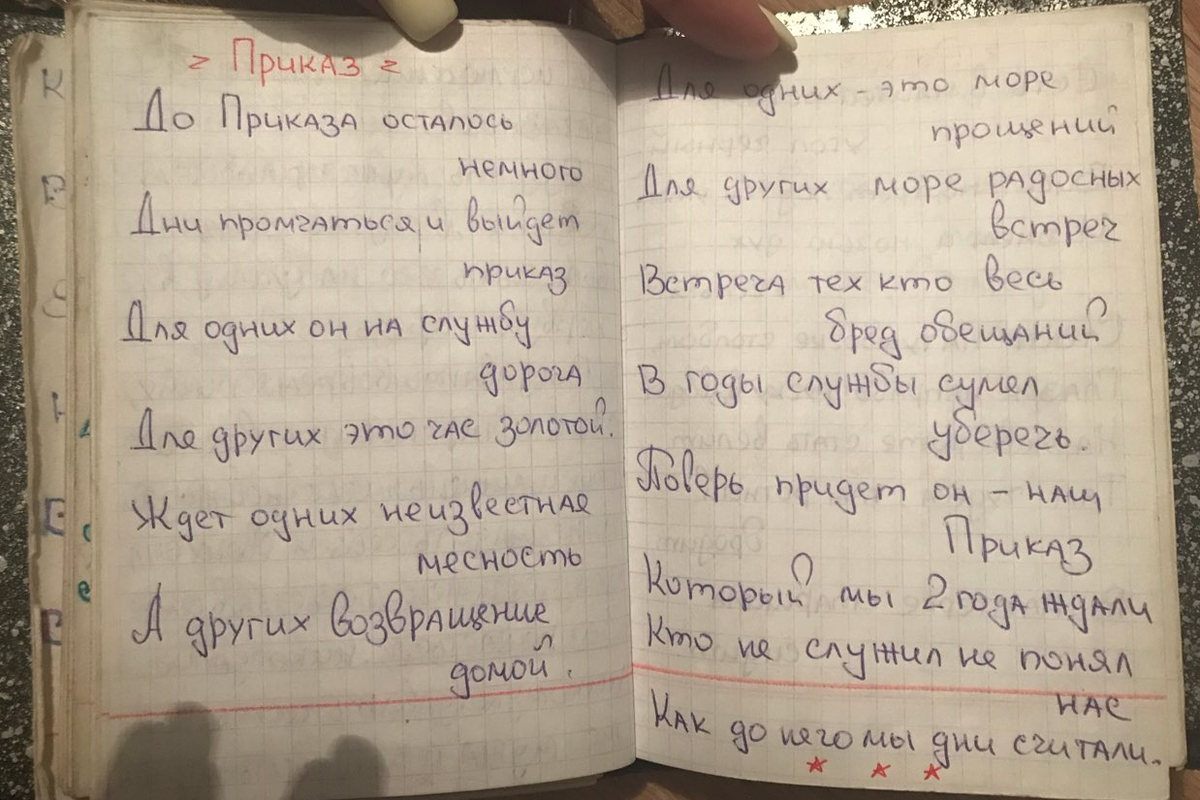 = Приказ =
До Приказа осталось
немного
Дни промчаться и выйдет
приказ
Для одних он на службу
дорога
Для других это час золотой.
Ждет одних неизвестная
месность
А других возвращение
домой.
Для одних - это море
прощений
Для других море радосных
встреч
Встреча тех кто весь
бред обещаний
В годы службы сумел
уберечь.
Поверь придет он - наш
Приказ
Который мы 2 года ждали
Кто не служил не понял
нас
Как до него мы дни считали.